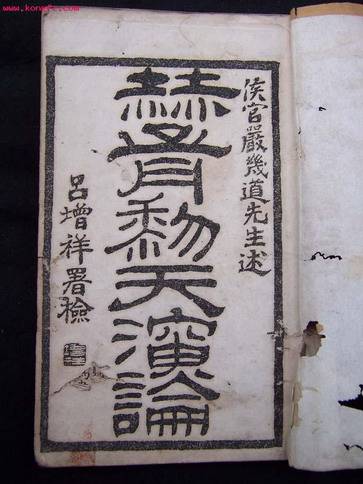 www.kongfz.com
侯官嚴幾道先生述
赫胥黎天演論
呂增祥署檢